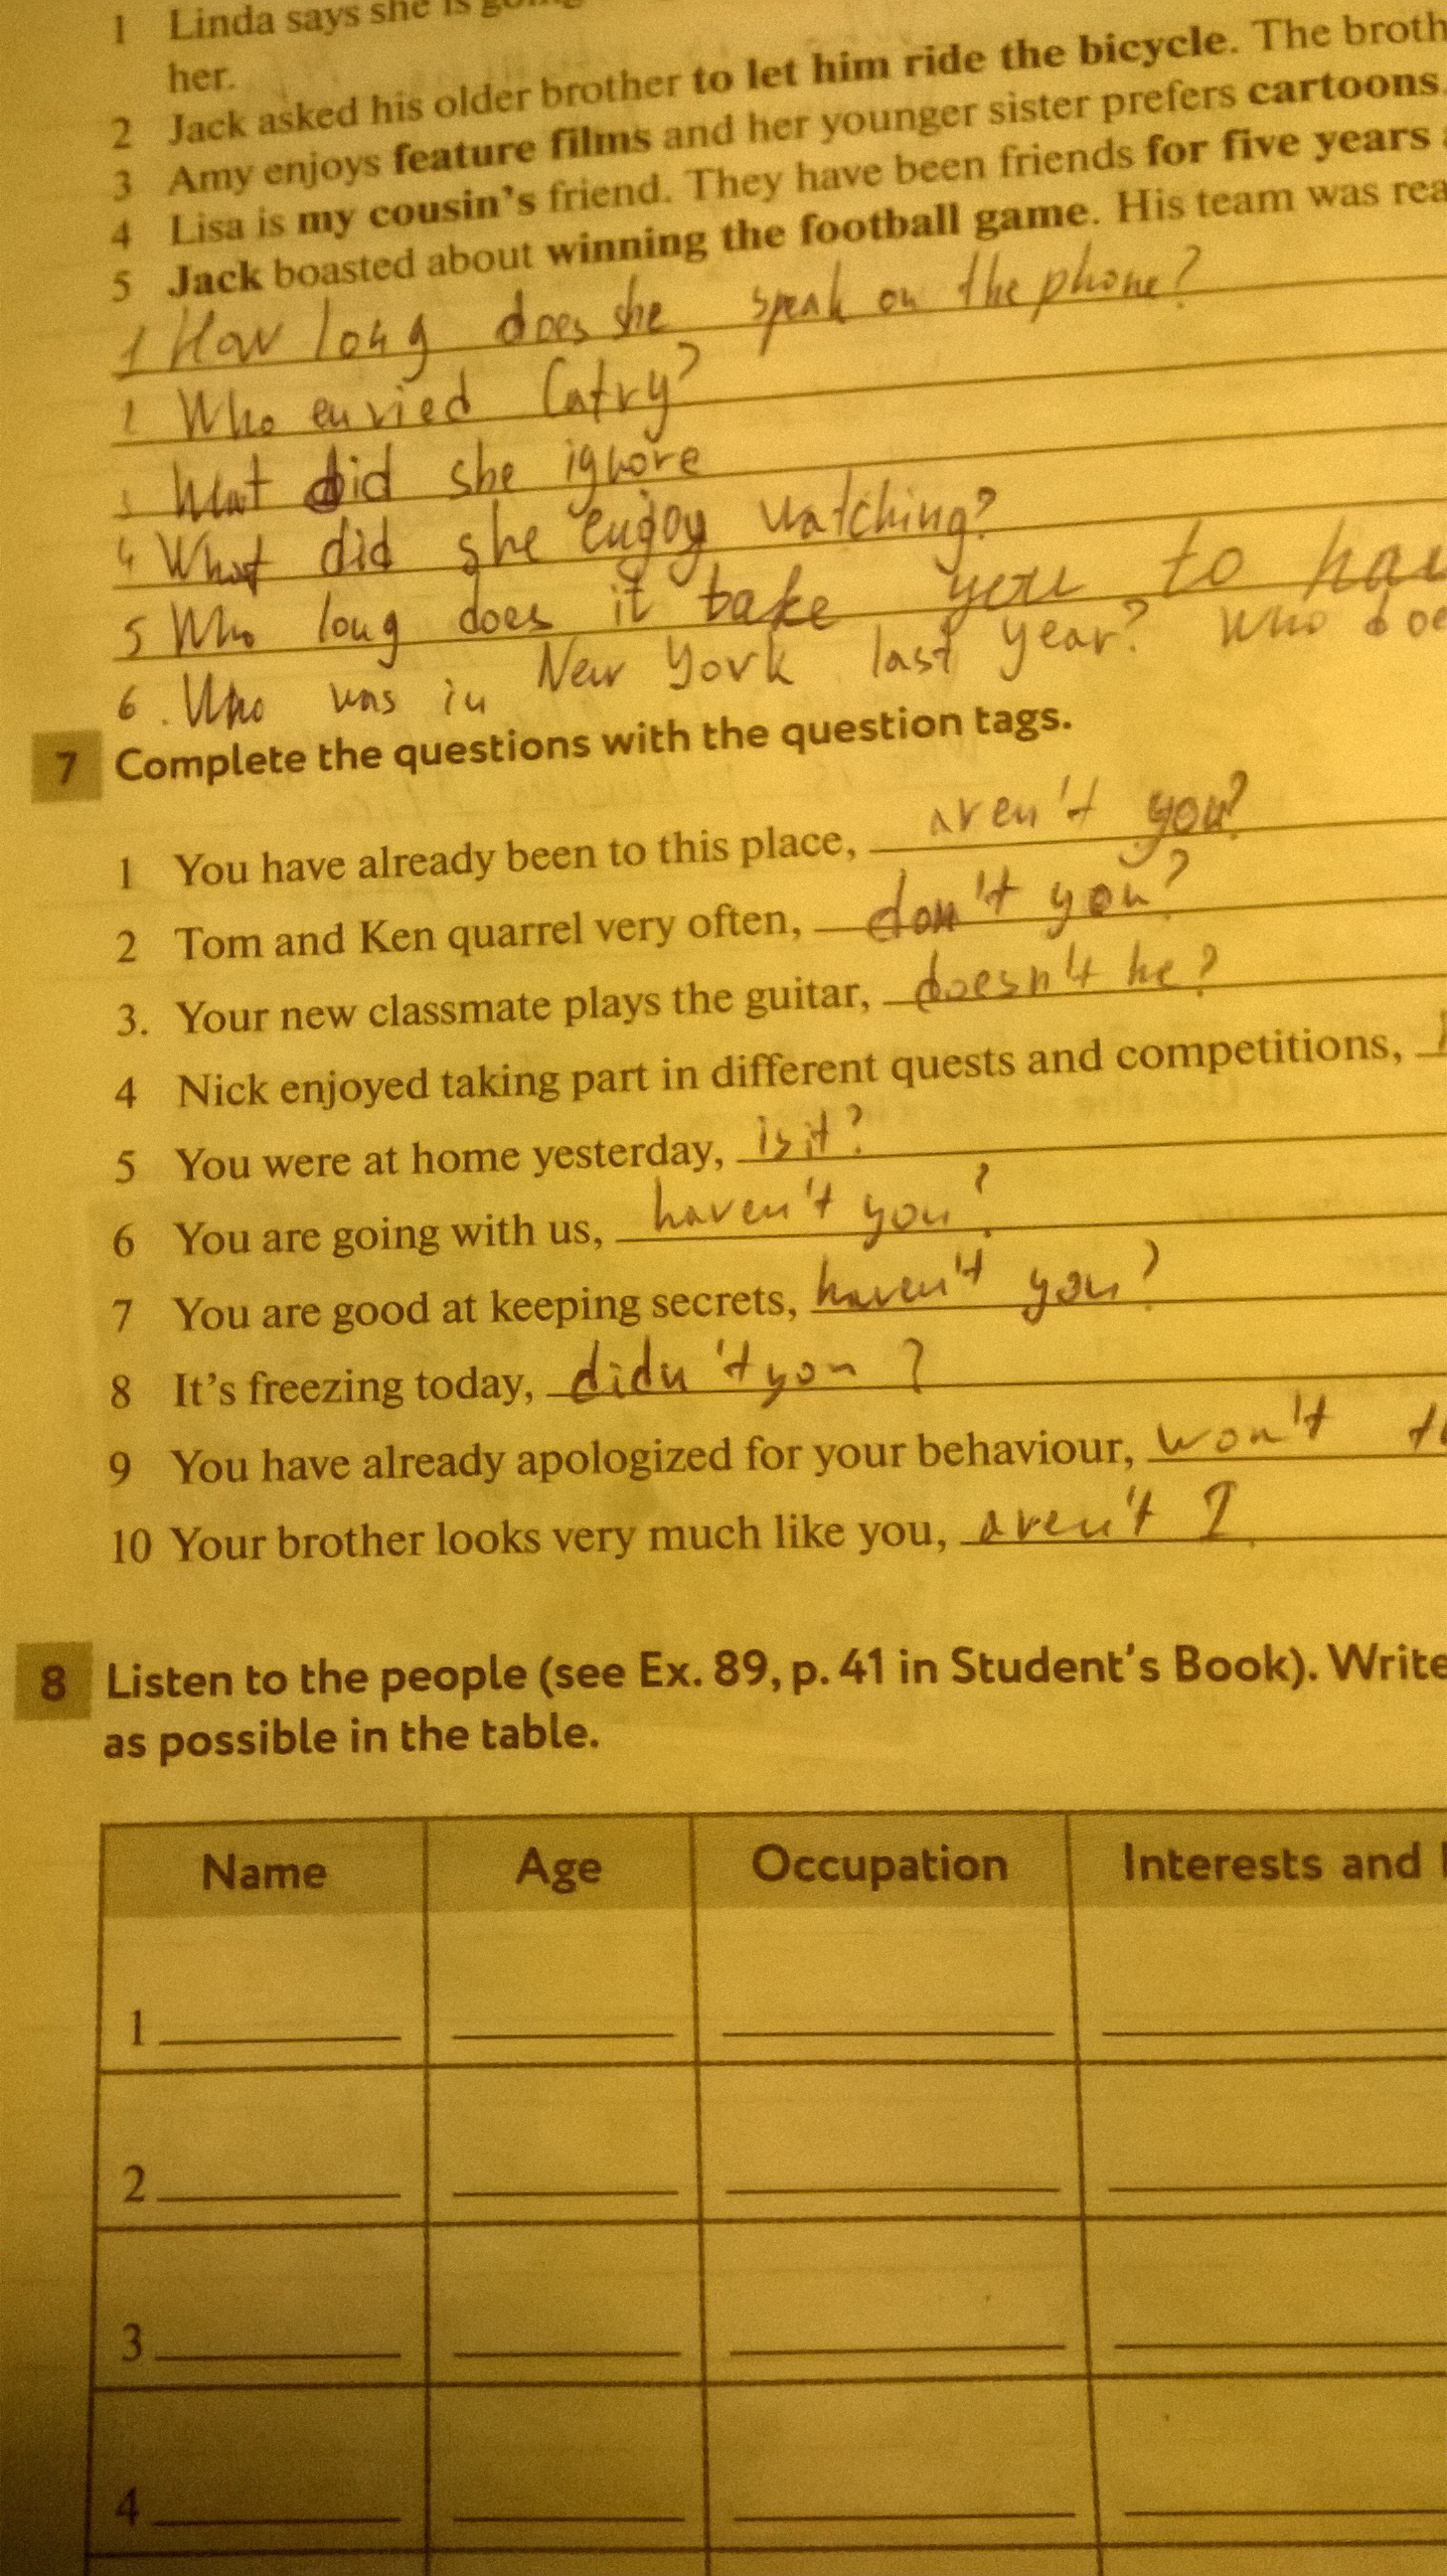 1 Linda says she is going
her.
2 Jack asked his older brother to let him ride the bicycle. The broth
3 Amy enjoys feature films and her younger sister prefers cartoons.
4 Lisa is my cousin's friend. They have been friends for five years
5 Jack boasted about winning the football game. His team was rea
1 How long does she speak on the phone?
2 Who envied Catry?
3 What did she ignore
4 What did she enjoy watching?
5 Who long does it take you to hav
6. Who was in New York last year? Who doe
7 Complete the questions with the question tags.
1 You have already been to this place, aren't you?
2 Tom and Ken quarrel very often, don't you?
3. Your new classmate plays the guitar, doesn't he?
4 Nick enjoyed taking part in different quests and competitions,
5 You were at home yesterday, is it?
6 You are going with us, haven't you?
7 You are good at keeping secrets, haven't you?
8 It's freezing today, didn't you?
9 You have already apologized for your behaviour, won't t
10 Your brother looks very much like you, aren't I
8 Listen to the people (see Ex. 89, p. 41 in Student's Book). Write
as possible in the table.
Name Age Occupation Interests and
1
2
3
4